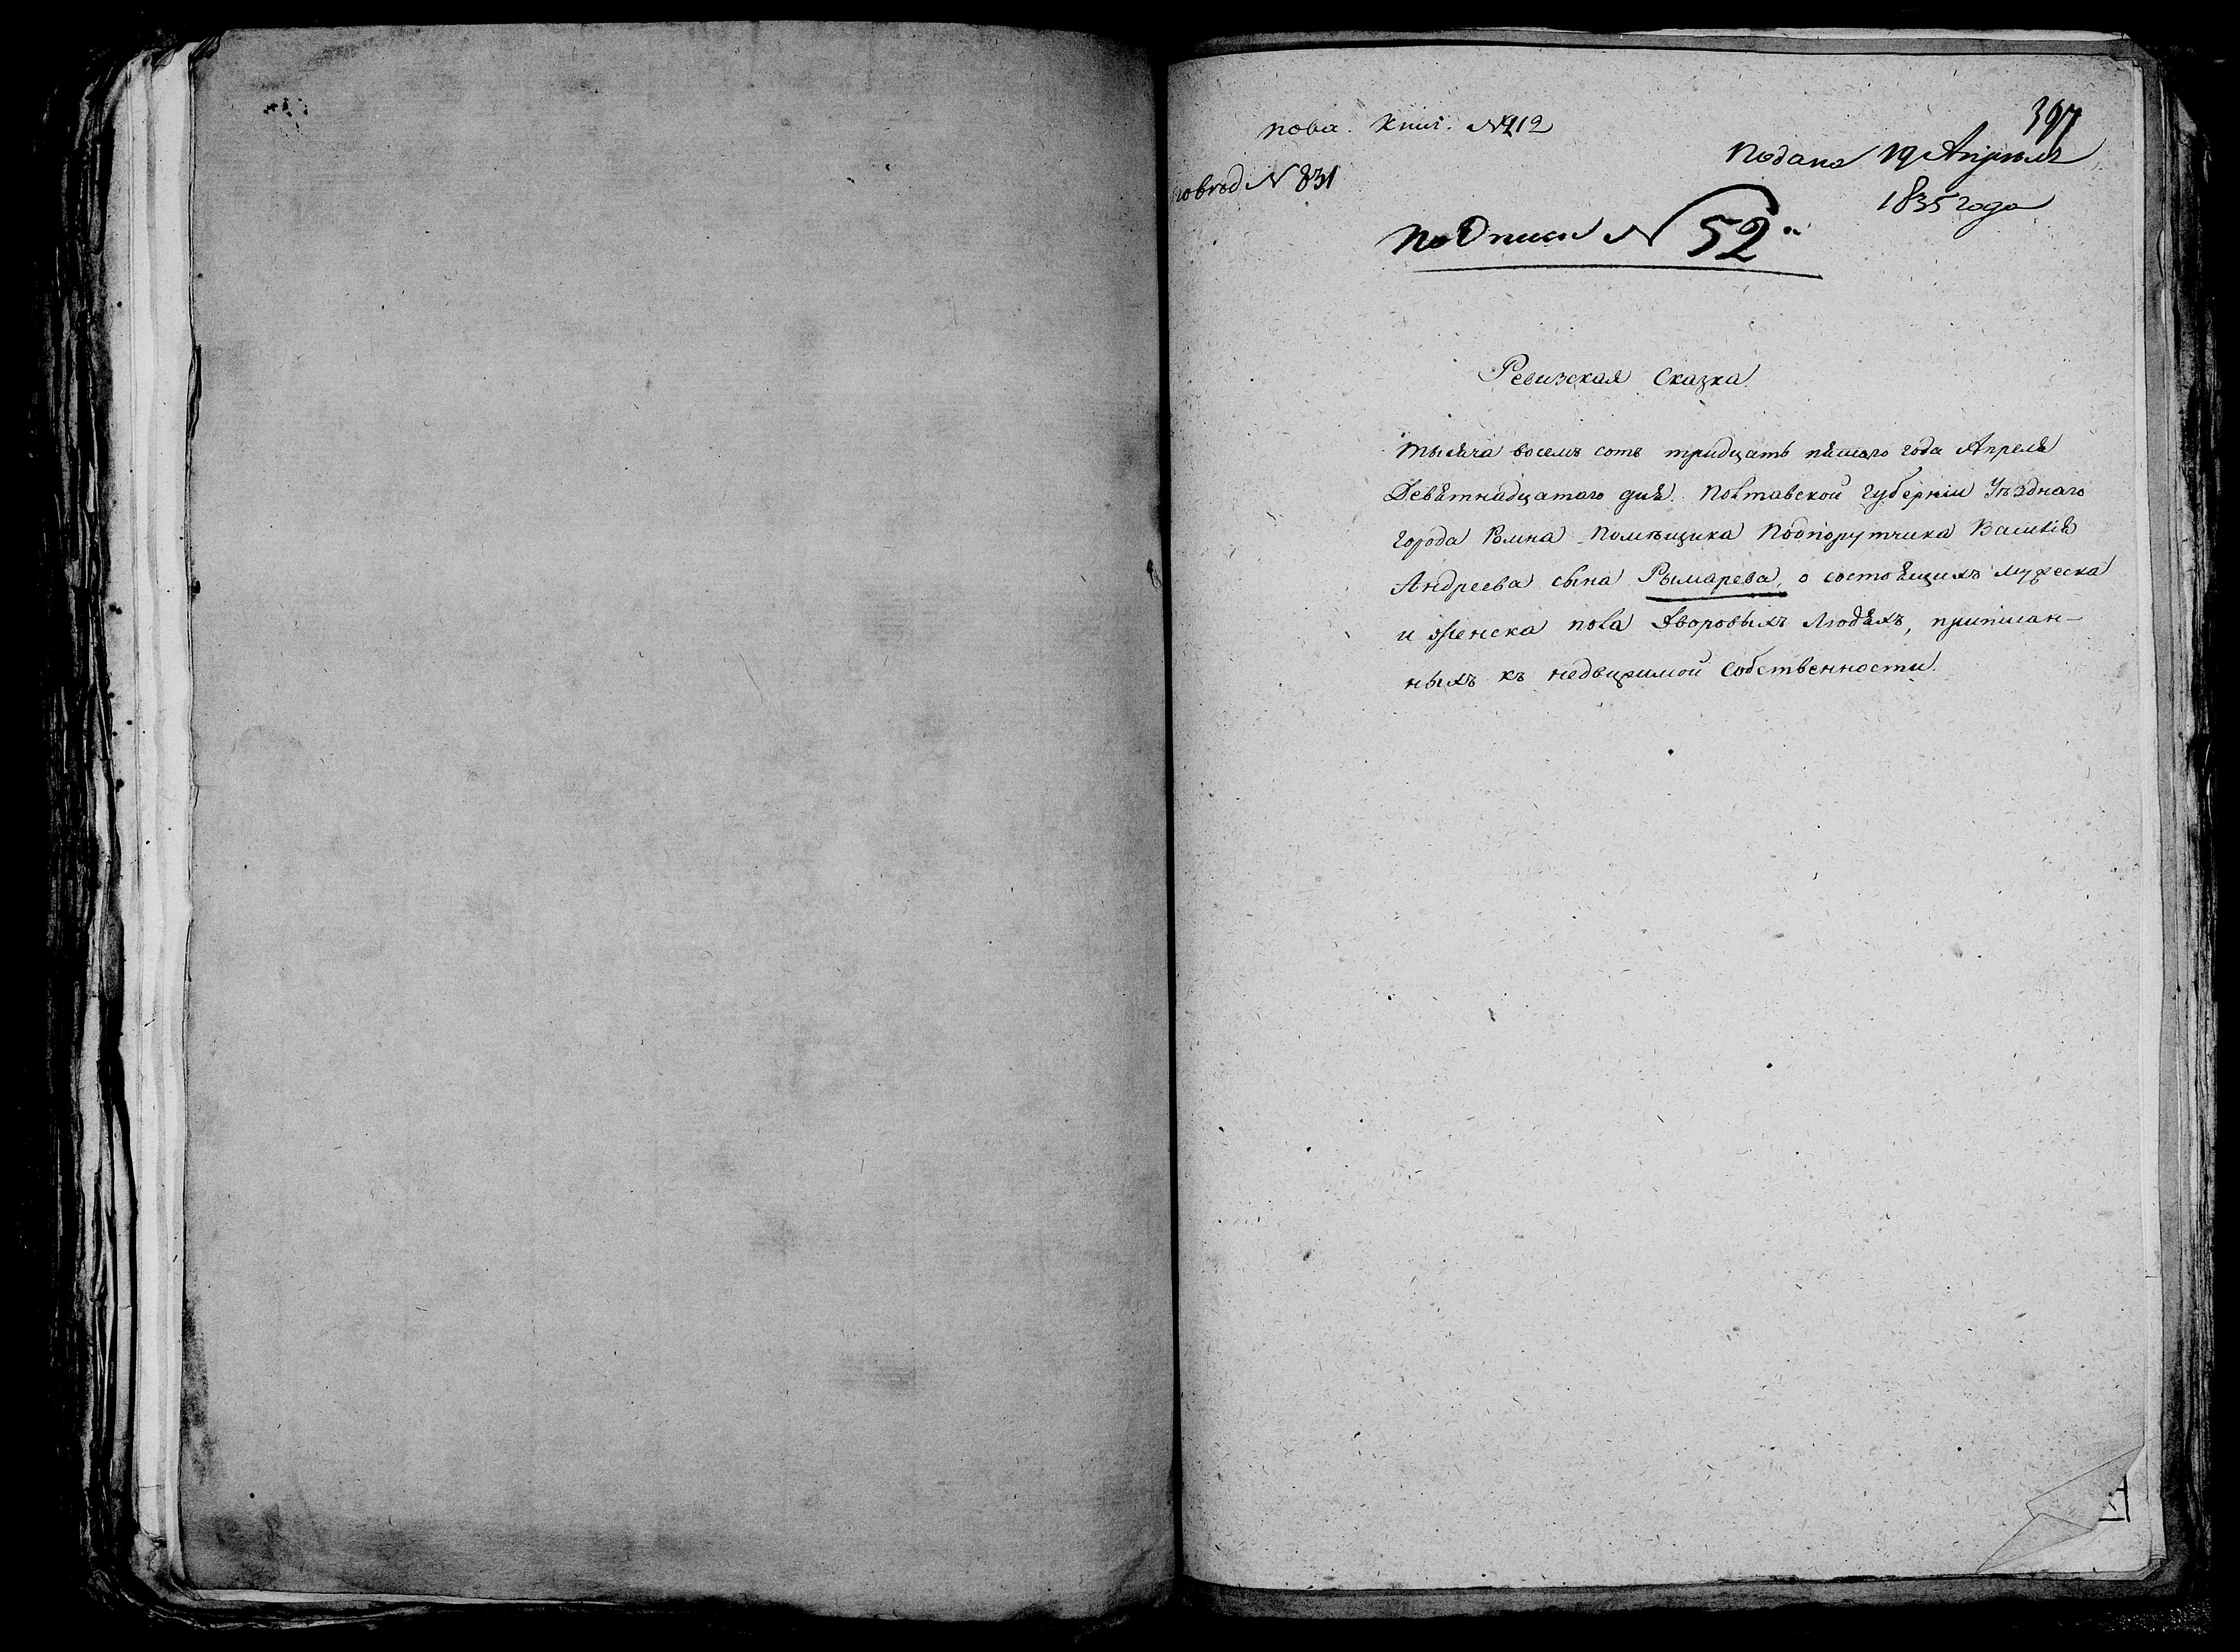 397
пова. книг. № 212
Подана 19 Апреля
повѣд № 831
1835 года
По Описи № 52.
Ревизская Сказка.
Тысяча восемь сотъ тридцать пятаго года Апреля
Девятнадцатаго дня. Полтавской Губерніи Уѣзднаго
города Ромна Помѣщика Подпорутчика Василія
Андреева сына Рымарева, о состоящихъ мужеска
и женска пола дворовыхъ людяхъ, приписан-
ныхъ къ недвижимой собственности.